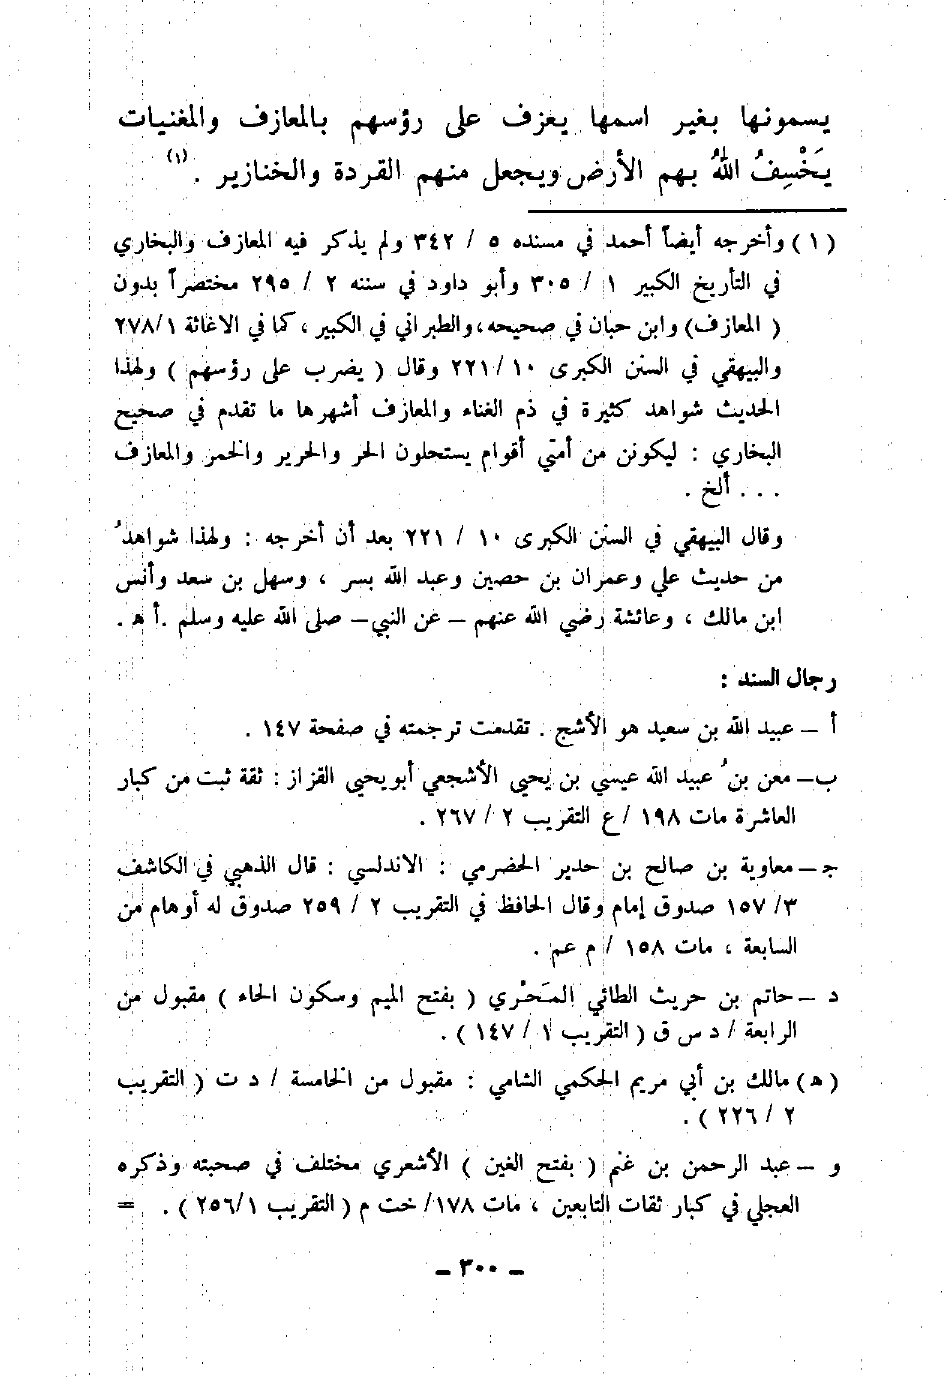 يسمونها بغير اسمها يعزف على رؤسهم بالمعازف والمغنيات
يَخْسِفُ اللهُ بهم الأرض ويجعل منهم القردة والخنازير . (١)
( ١ ) وأخرجه أيضاً أحمد في مسنده ٥ / ٣٤٢ ولم يذكر فيه المعازف والبخاري
في التأريخ الكبير ١ / ٣٠٥ وأبو داود في سننه ٢ / ٢٩٥ مختصراً بدون
( المعازف) وابن حبان في صحيحه، والطبراني في الكبير ، كما في الاغاثة ٢٧٨/١
والبيهقي في السنن الكبرى ١٠ /٢٢١ وقال ( يضرب على رؤسهم ) ولهذا
الحديث شواهد كثيرة في ذم الغناء والمعازف أشهرها ما تقدم في صحيح
البخاري : ليكونن من أمتي أقوام يستحلون الحر والحرير والخمر والمعازف
. . . ألخ .
وقال البيهقي في السنن الكبرى ١٠ / ٢٢١ بعد أن أخرجه : ولهذا شواهدُ
من حديث علي وعمران بن حصين وعبد الله بسر ، وسهل بن سعد وأنس
ابن مالك ، وعائشة رضي الله عنهم – عن النبي– صلى الله عليه وسلم .أ ﻫ .
رجال السند :
أ – عبيد الله بن سعيد هو الأشج . تقدمت ترجمته في صفحة ١٤٧ .
ب– معن بنُ عبيد الله عيسي بن يحيي الأشجعي أبو يحيي القزاز : ثقة ثبت من كبار
العاشرة مات ١٩٨ /ع التقريب ٢ / ٢٦٧ .
جـ – معاوية بن صالح بن حدير الحضرمي : الاندلسي : قال الذهبي في الكاشف
٣/ ١٥٧ صدوق إمام وقال الحافظ في التقريب ٢ / ٢٥٩ صدوق له أوهام من
السابعة ، مات ١٥٨ / م عم .
د – حاتم بن حريث الطائي المَحْري ( بفتح الميم وسكون الحاء ) مقبول من
الرابعة / د س ق ( التقريب ١ / ١٤٧ ) .
( ﻫ ) مالك بن أبي مريم الحكمي الشامي : مقبول من الخامسة / د ت ( التقريب
٢ / ٢٢٦ ) .
و – عبد الرحمن بن غنم ( بفتح الغين ) الأشعري مختلف في صحبته وذكره
العجلي في كبار ثقات التابعين ، مات ١٧٨/ خت م ( التقريب ٢٥٦/١ ) . =
– ٣٠٠ –